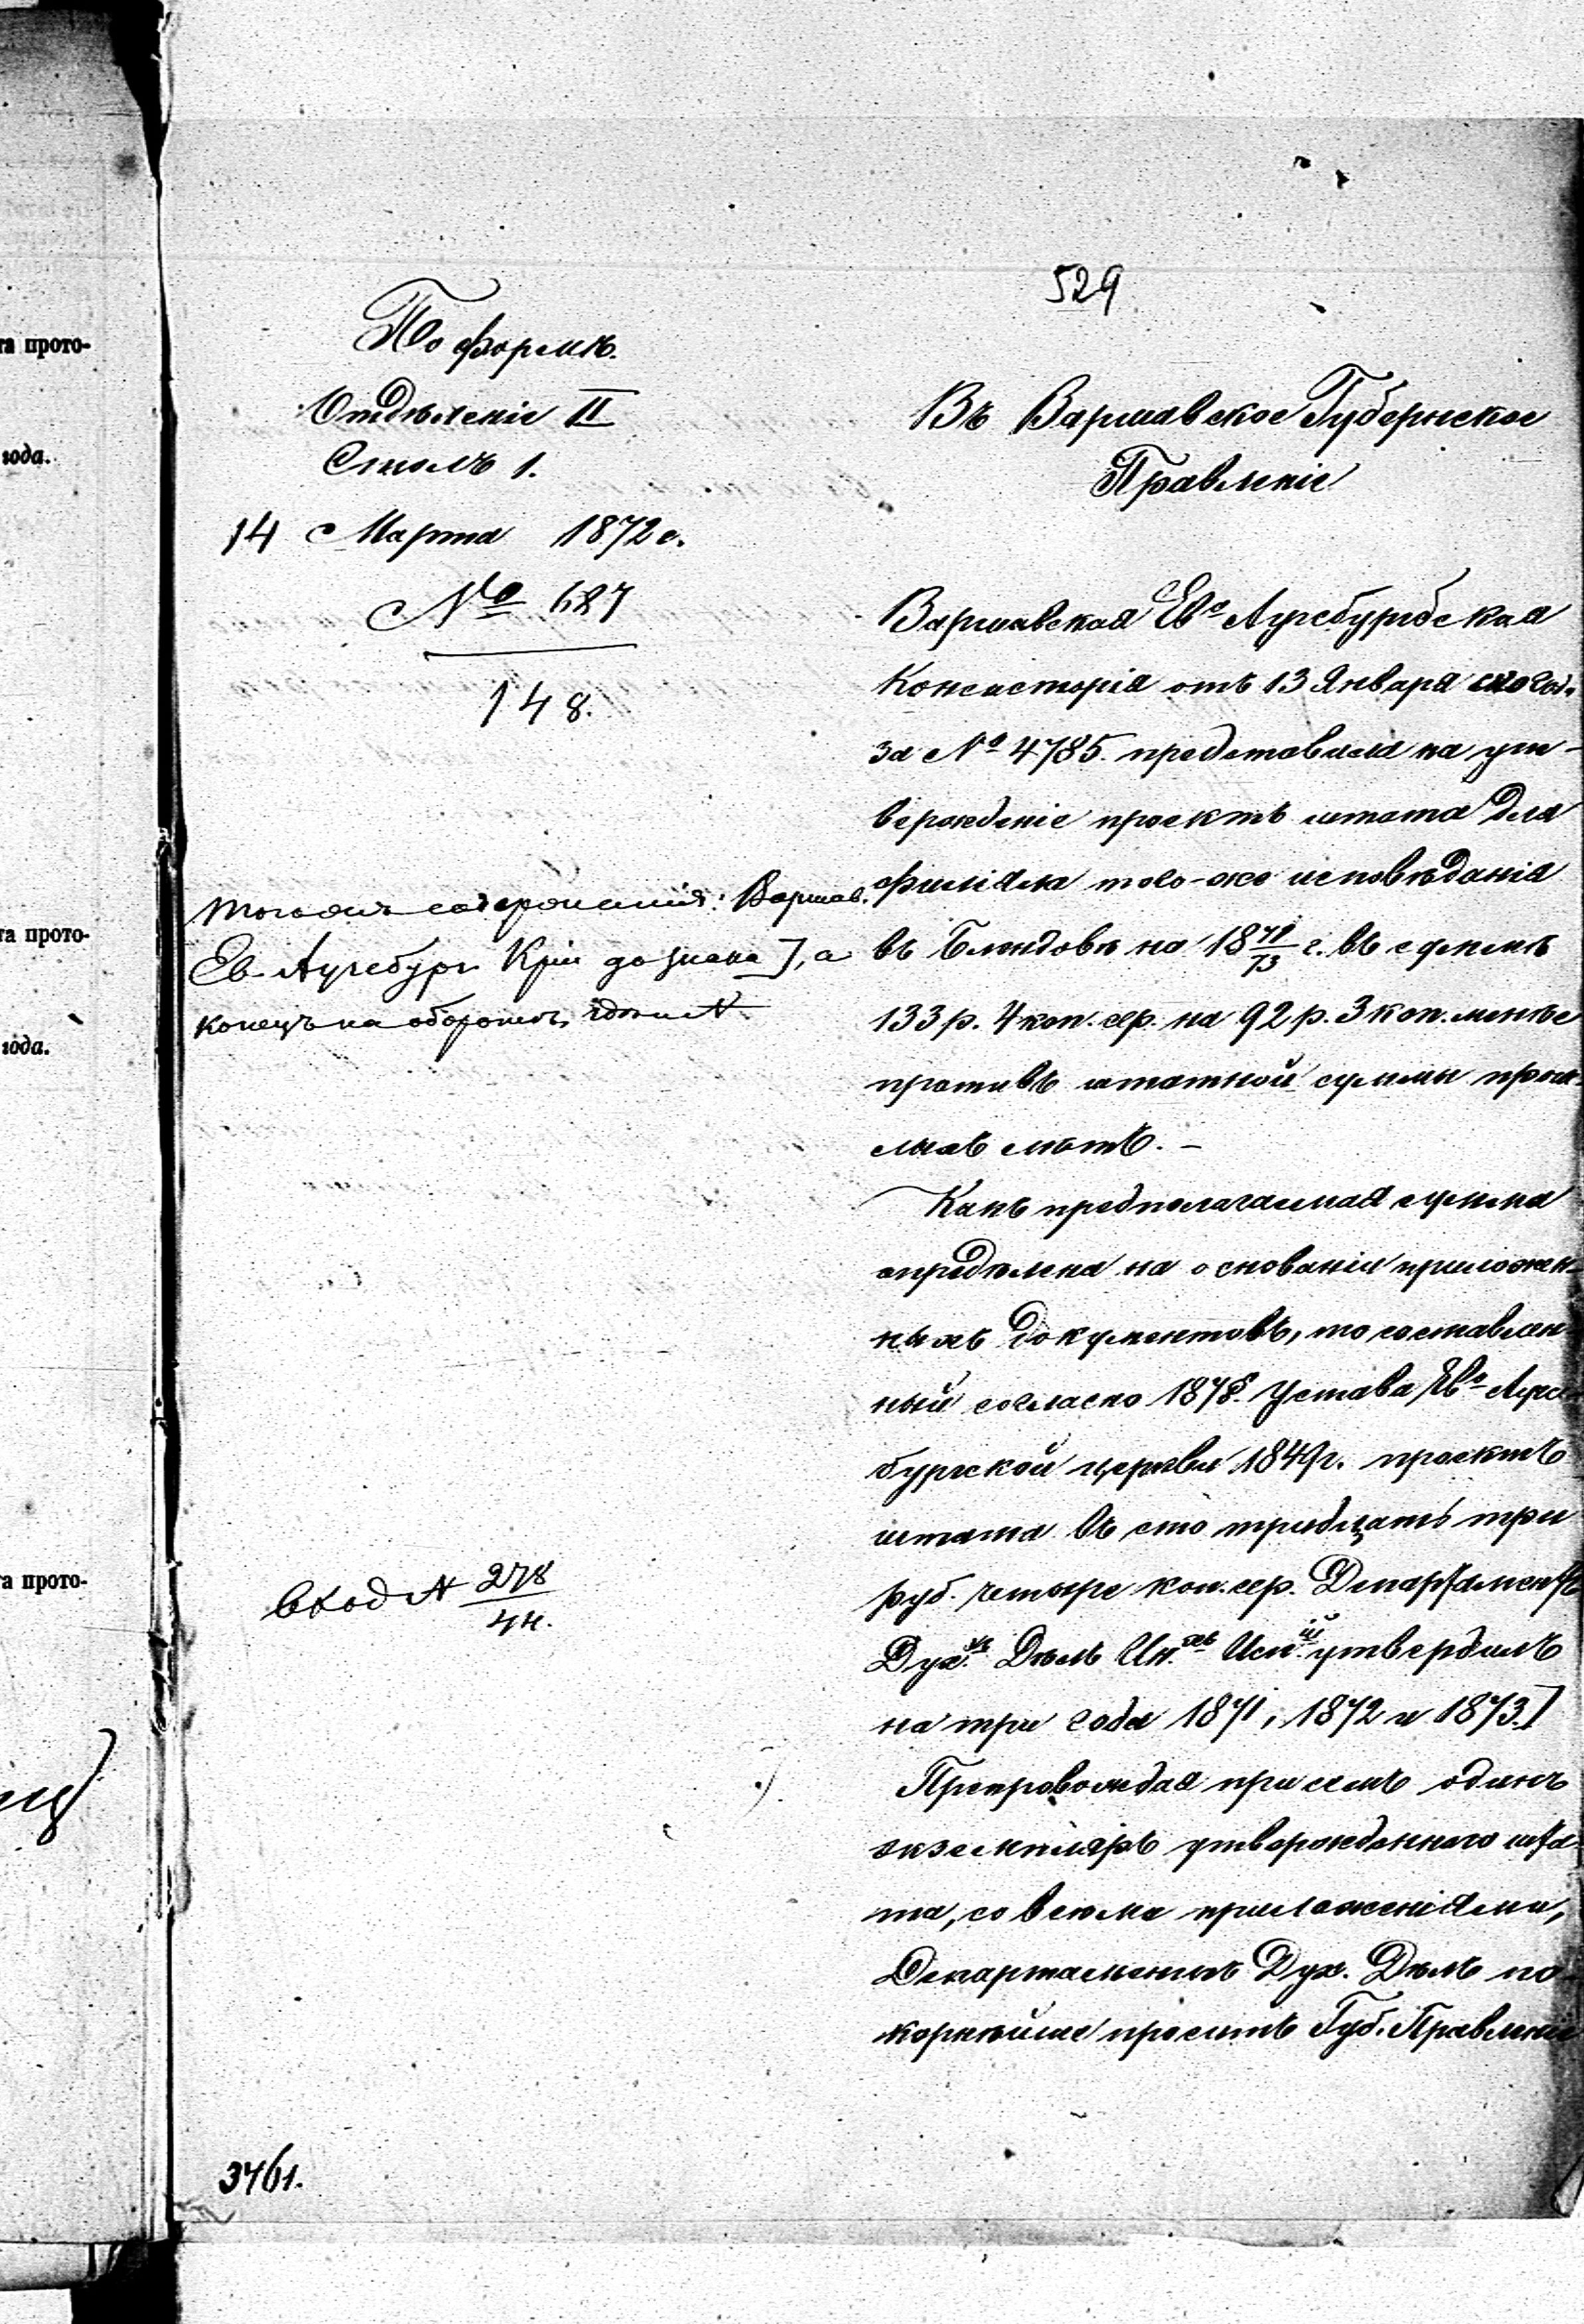 529
По формѣ.
Отдѣленіе II
Столъ 1.
14 Марта 1872 г.
№ 687
148.
Въ Варшавское Губернское
Правленіе
Варшавская Ев.-Аугсбургская
Консисторія отъ 13 Января сего год.
за № 4785. представила на ут-
вержденіе проектъ штата для
филіяла того-же исповѣданія
въ на 18 71/73 г. въ суммѣ
133 р. 4 коп. сер. на 92 р. 3 коп. менѣе
противъ штатной суммы прош-
лыхъ лѣтъ. –
Какъ предполагаемая сумма
опредѣлена на основаніи приложен-
ныхъ документовъ, то составлен-
ный согласно 187 §. Устава Ев.-Аугс-
бургской церкви 1849 г. проектъ
штата въ сто тридцать три
руб. четыре коп. сер. Департаментъ
Дух.ъ Дѣлъ Ин.хъ Исп.ій утвердилъ
на три года 1871, 1872 и 1873.]
Препровождая при семъ одинъ
экземпляръ утвержденнаго шта-
та, со всѣми приложеніями,
Департаментъ Дух. Дѣлъ по-
корнѣйше проситъ Губ. Правленіе
того же содержанія: Варшав.
Ев. Аугсбург. К-ріи до знака ], а
конецъ на оборотѣ
вход № 278/44.
3461.
та прото-
года.
та прото-
года.
та прото-